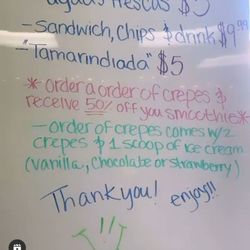 aguas frescas $5
- Sandwich, Chips & drink $9.99
- "Tamarindiada" $5
* order a order of crepes &
receive 50% off you smoothie *
- order of crepes comes w/ 2
crepes & 1 scoop of ice cream
(vanilla, chocolate or strawberry)
Thank you! enjoy!!